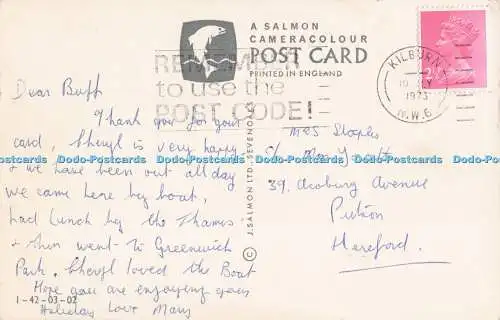 A SALMON
CAMERACOLOUR
POST CARD
PRINTED IN ENGLAND
REMEMBER
to use the
POST CODE!
KILBURN
1973
N.W.6
Dear Buff
Thank you for your
card, Sheryl is very happy
& we have been out all day
we came here by boat,
had lunch by the Thames
& then went to Greenwich
Park. Sheryl loved the Boat
Hope you are enjoying your
Holiday Love Mary
Mrs Staples
c/o
39, Avenue
Hereford.
J. SALMON LTD., SEVENOAKS ©
1-42-03-02
Dodo-Postcards Dodo-Postcards Dodo-Postcards Dodo-Postcards Dodo-Postcards